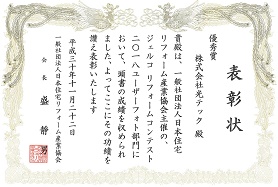 表彰状
優秀賞
株式会社光テック 殿
貴殿は、一般社団法人日本住宅
リフォーム産業協会主催の、
ジェルコ リフォームコンテスト
二〇一八ユーザーフォト部門に
おいて、頭書の成績を収められ
ました、よってここにその功績を
讃え表彰いたします
平成三十年十一月二十二日
一般社団法人日本住宅リフォーム産業協会
会長 盛 静男